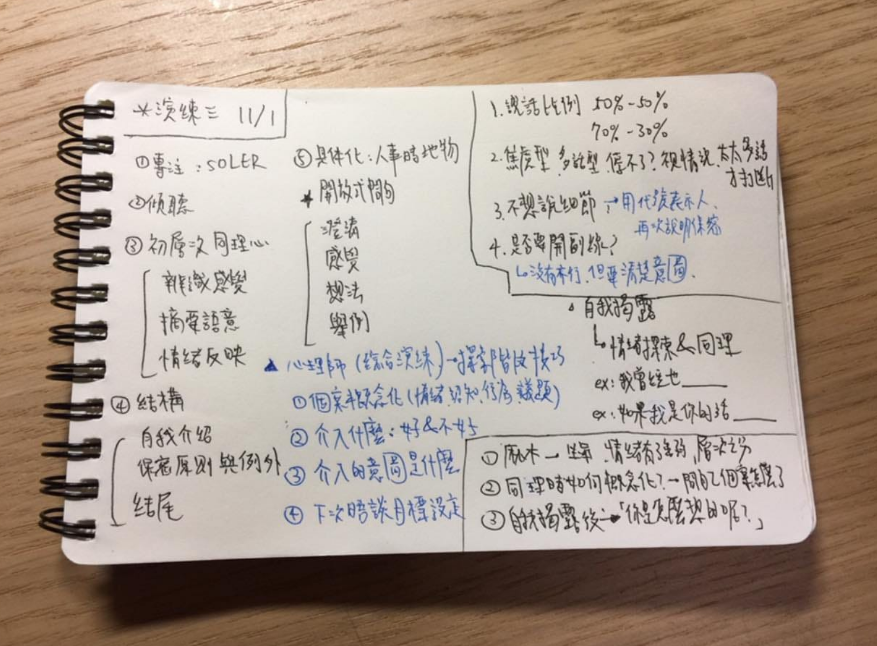 *演練三 11/1
①專注：SOLER
②傾聽
③初層次同理心
辨識感覺
摘要語意
情緒反映
④結構
自我介紹
保密原則與例外
結尾
⑤具體化：人事時地物
*開放式問句
澄清
感覺
想法
舉例
▲心理師(綜合演練)→探索階段技巧
①個案概念化(情緒認知行為議題)
②介入什麼：好&不好
③介入的意圖是什麼
④下次晤談目標設定
1.說話比例 50%-50%
70%-30%
2.焦慮型,多話型停不了？視情況,太太多話
才打斷
3.不想說細節→用代號表示人、
再次說明保密
4.是否要開副線？
↳沒有不行,但要清楚意圖.
自我揭露
↳情緒探索&同理
ex:我曾經也____
ex:如果我是你的話____
①麻木→生氣 情緒有強弱,層次之分
②同理時如何概念化？→問自己個案怎麼了
③自我揭露後→「你是怎麼想的呢？」